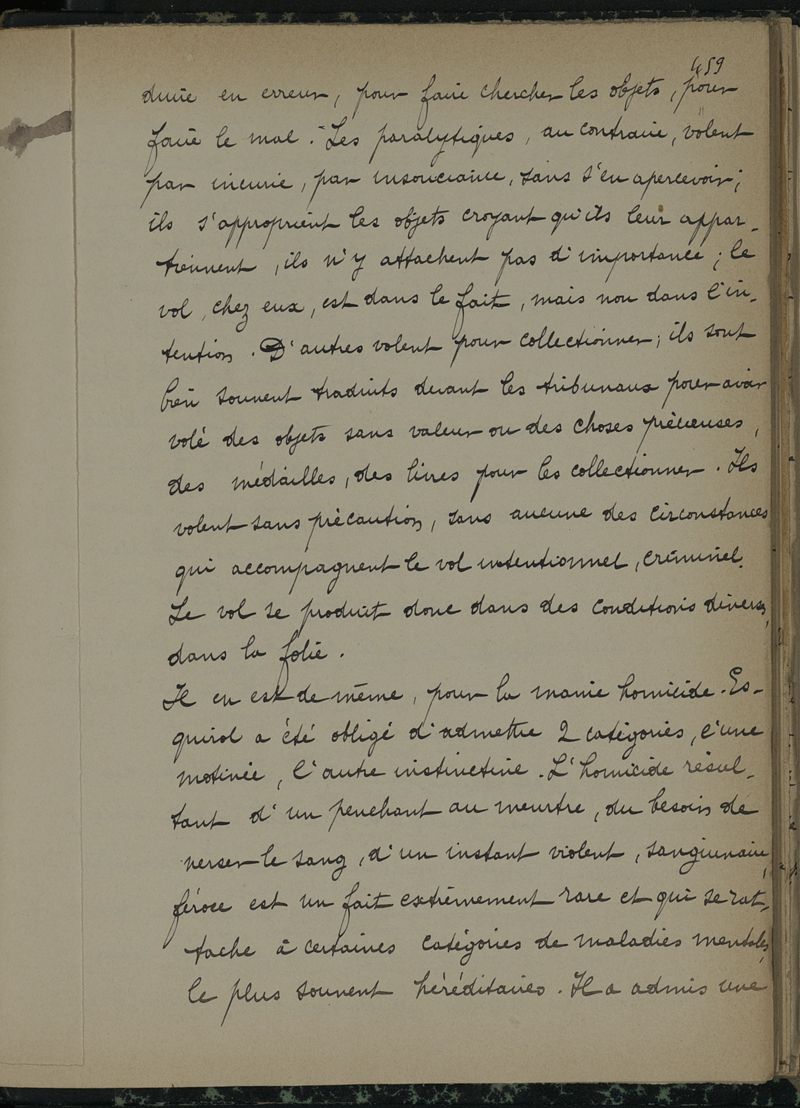 459
duire en erreur, pour faire chercher les objets, pour
faire le mal. - Les paralytiques, au contraire, volent
par incurie, par insouciance, sans s'en apercevoir;
ils s'approprient les objets croyant qu'ils leur appar-
tiennent, ils n'y attachent pas d'importance; le
vol, chez eux, est dans le fait, mais non dans l'in-
tention. D'autres volent pour collectionner; ils sont
bien souvent traduits devant les tribunaux pour avoir
volé des objets sans valeur ou des choses précieuses,
des médailles, des livres pour les collectionner. Ils
volent sans précaution, sans aucune des circonstances
qui accompagnent le vol intentionnel, criminel.
Le vol se produit donc dans des conditions diverses,
dans la folie.
Il en est de même, pour la manie homicide. Es-
quirol a été obligé d'admettre 2 catégories, l'une
motivée, l'autre instinctive. L'homicide résul-
tant d'un penchant au meurtre, du besoin de
verser le sang, d'un instant violent, sanguinaire,
féroce est un fait extrêmement rare et qui se rat-
tache à certaines catégories de maladies mentales,
le plus souvent héréditaires. Il a admis une